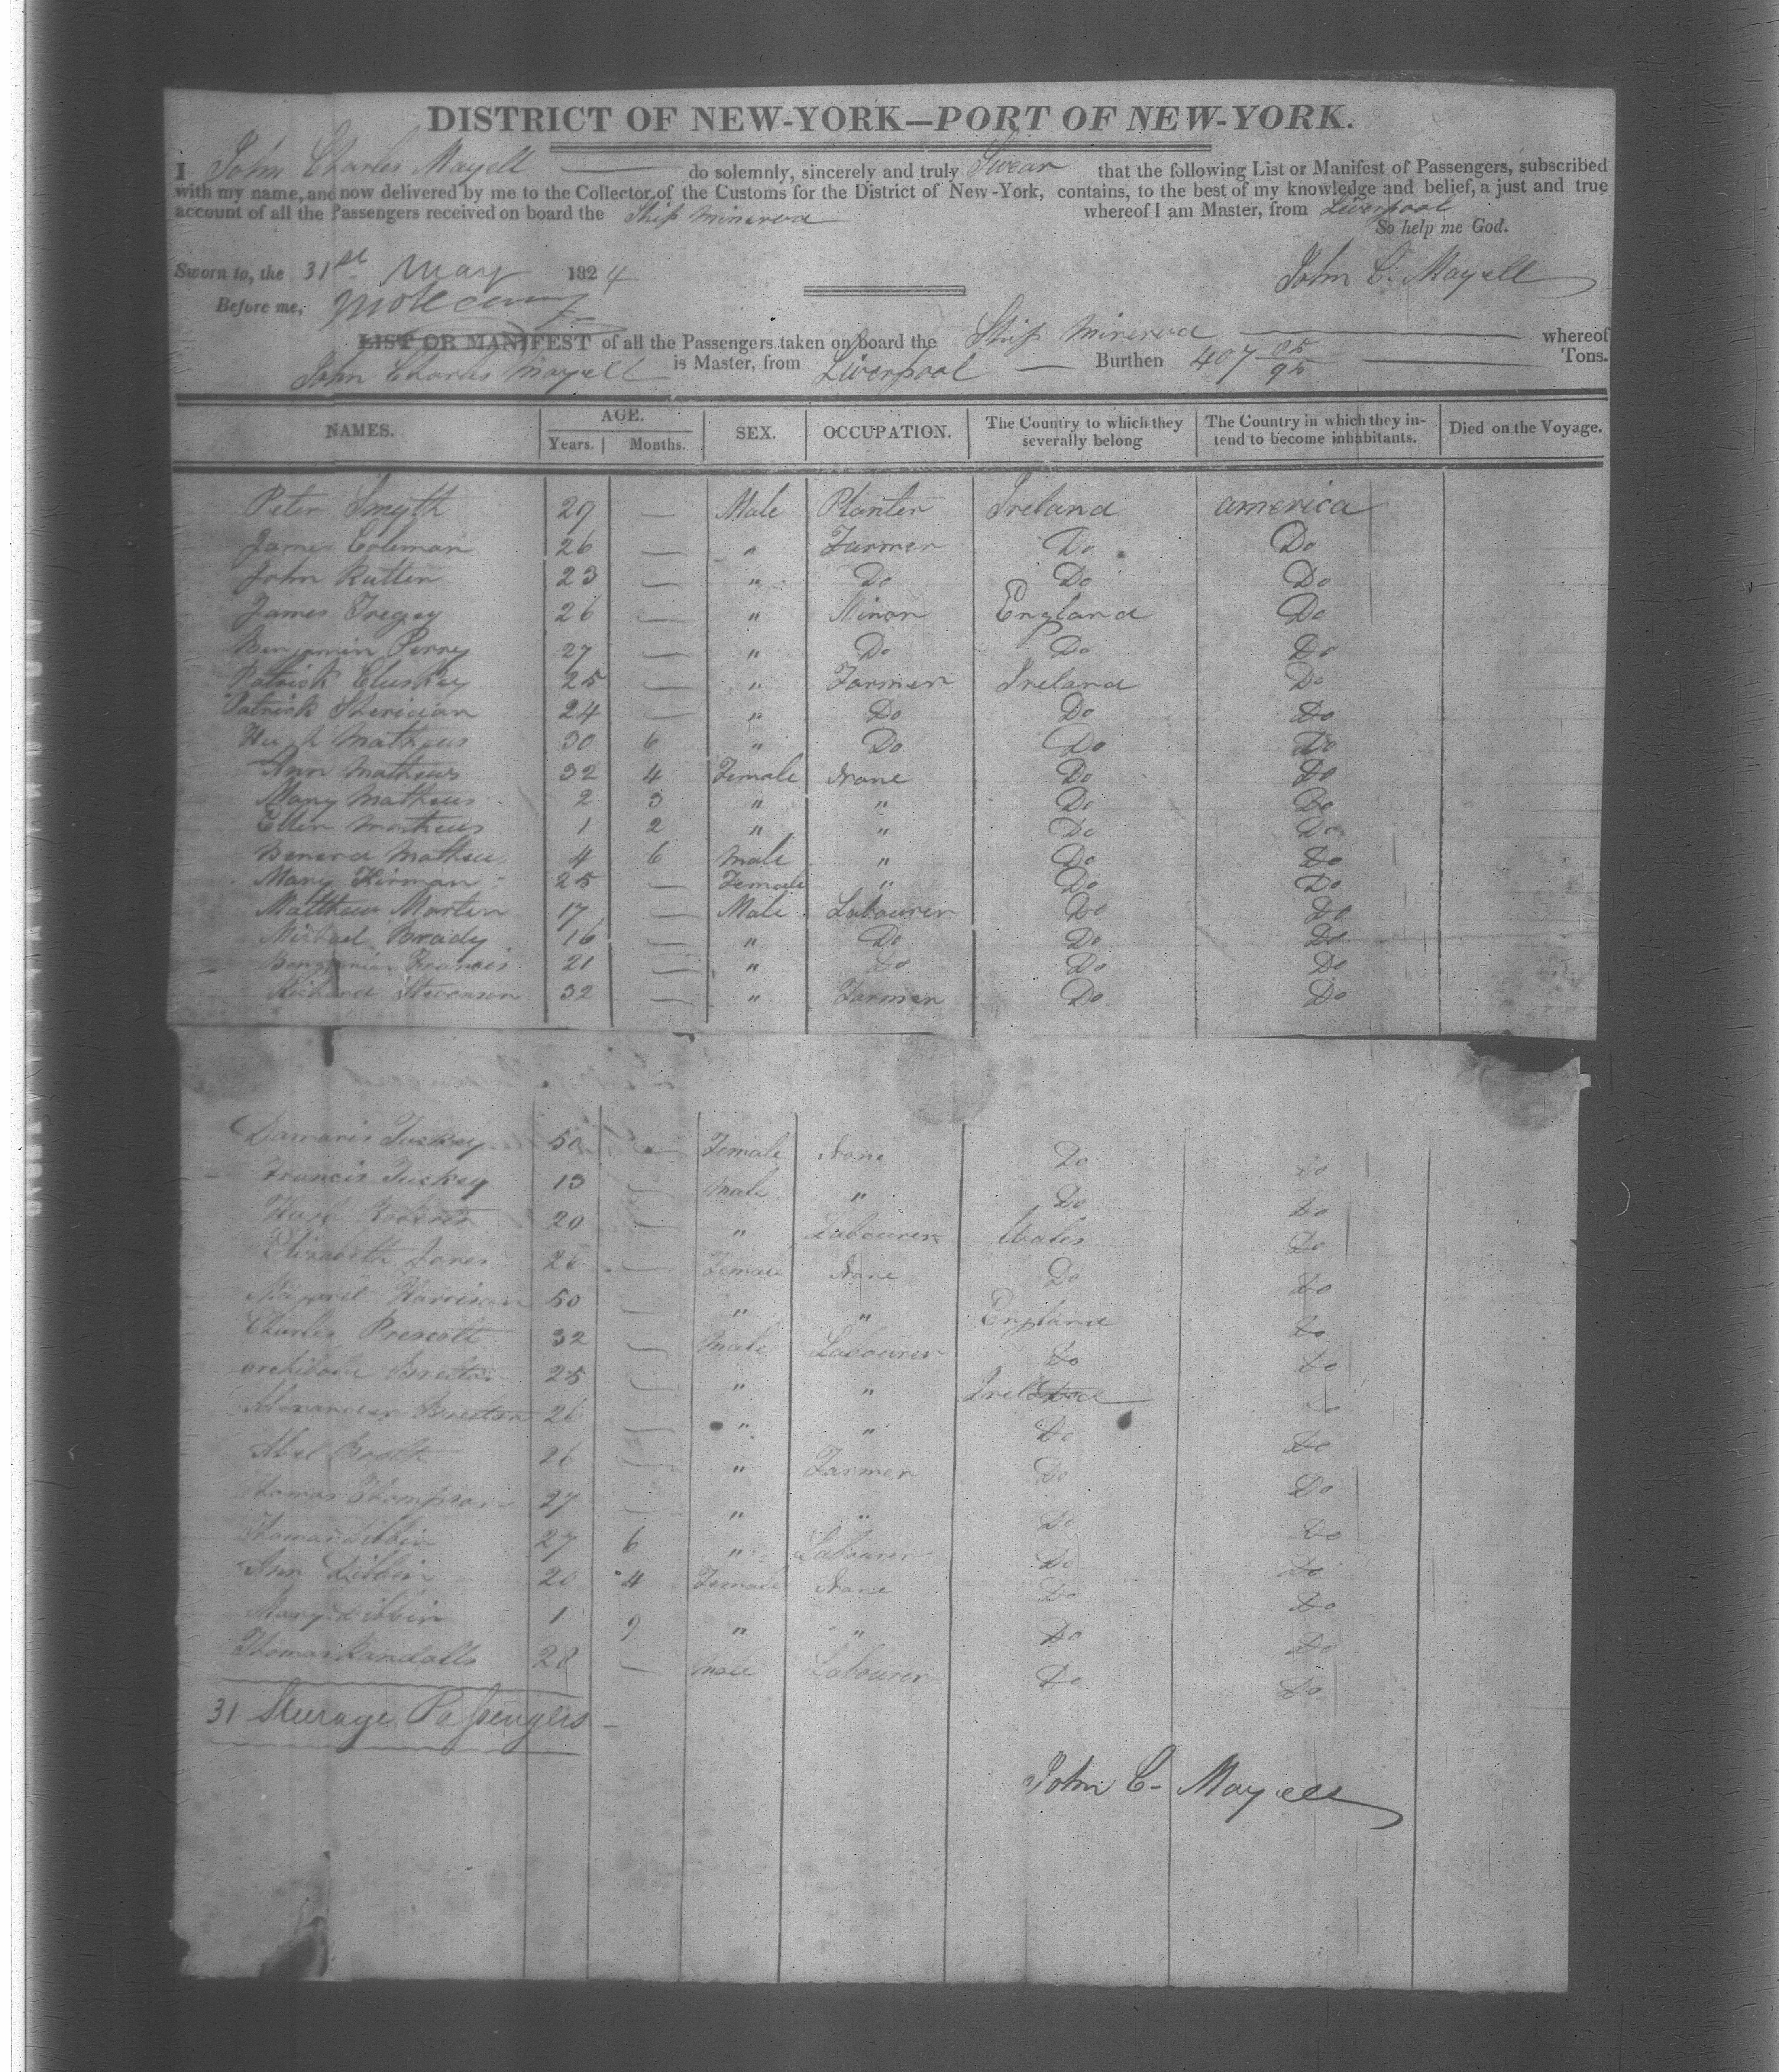 DISTRICT OF NEW-YORK—PORT OF NEW-YORK.
I John Charles Mayell — do solemnly, sincerely and truly Swear that the following List or Manifest of Passengers, subscribed
with my name, and now delivered by me to the Collector of the Customs for the District of New-York, contains, to the best of my knowledge and belief, a just and true
account of all the Passengers received on board the Ship Minerva whereof I am Master, from Liverpool
So help me God.
Sworn to, the 31st May 1824 John C. Mayell
Before me,
LIST OR MANIFEST of all the Passengers taken on board the Ship Minerva — whereof
John Charles Mayell is Master, from Liverpool — Burthen 407 05/95 — Tons.
NAMES. AGE. Years. Months. SEX. OCCUPATION. The Country to which they severally belong The Country in which they intend to become inhabitants. Died on the Voyage.
Peter Smyth 29 — Male Planter Ireland america
James Coleman 26 — " Farmer Do Do
John Rutten 23 — " Do Do Do
James Tregey 26 — " Minor England Do
Benjamin Perry 27 — " Do Do Do
Patrick Cluskey 25 — " Farmer Ireland Do
Patrick Sheridan 24 — " Do Do Do
Hugh Mathews 30 6 " Do Do Do
Ann Mathews 32 4 Female None Do Do
Mary Mathews 2 3 " " Do Do
Ellen Mathews 1 2 " " Do Do
Benard Mathew 4 6 Male " Do Do
Mary Kirman 25 — Female " Do Do
Matthew Morten 17 — Male Labourer Do Do
Michael Brady 16 — " Do Do Do
Benjamin Francis 21 — " Do Do Do
Richard Stevenson 32 — " Farmer Do Do
Damaris Tuckey 50 — Female None Do Do
Francis Tuckey 13 — Male " Do Do
Hugh Roberts 20 — " Labourer Wales Do
Elizabeth Jones 26 — Female None Do Do
Margret Harrison 50 — " " England Do
Charles Prescott 32 — Male Labourer Do Do
Breeton 25 — " " Ireland Do
Alexander Breeton 26 — " " Do Do
Abel 26 — " Farmer Do Do
Thomas Thompson 27 — " " Do Do
Thomas Dibbin 27 6 " Labourer Do Do
Ann Dibbin 20 4 Female None Do Do
Mary Dibbin 1 9 " " Do Do
Thomas Randalls 28 — Male Labourer Do Do
31 Steerage Passengers —
John C. Mayell